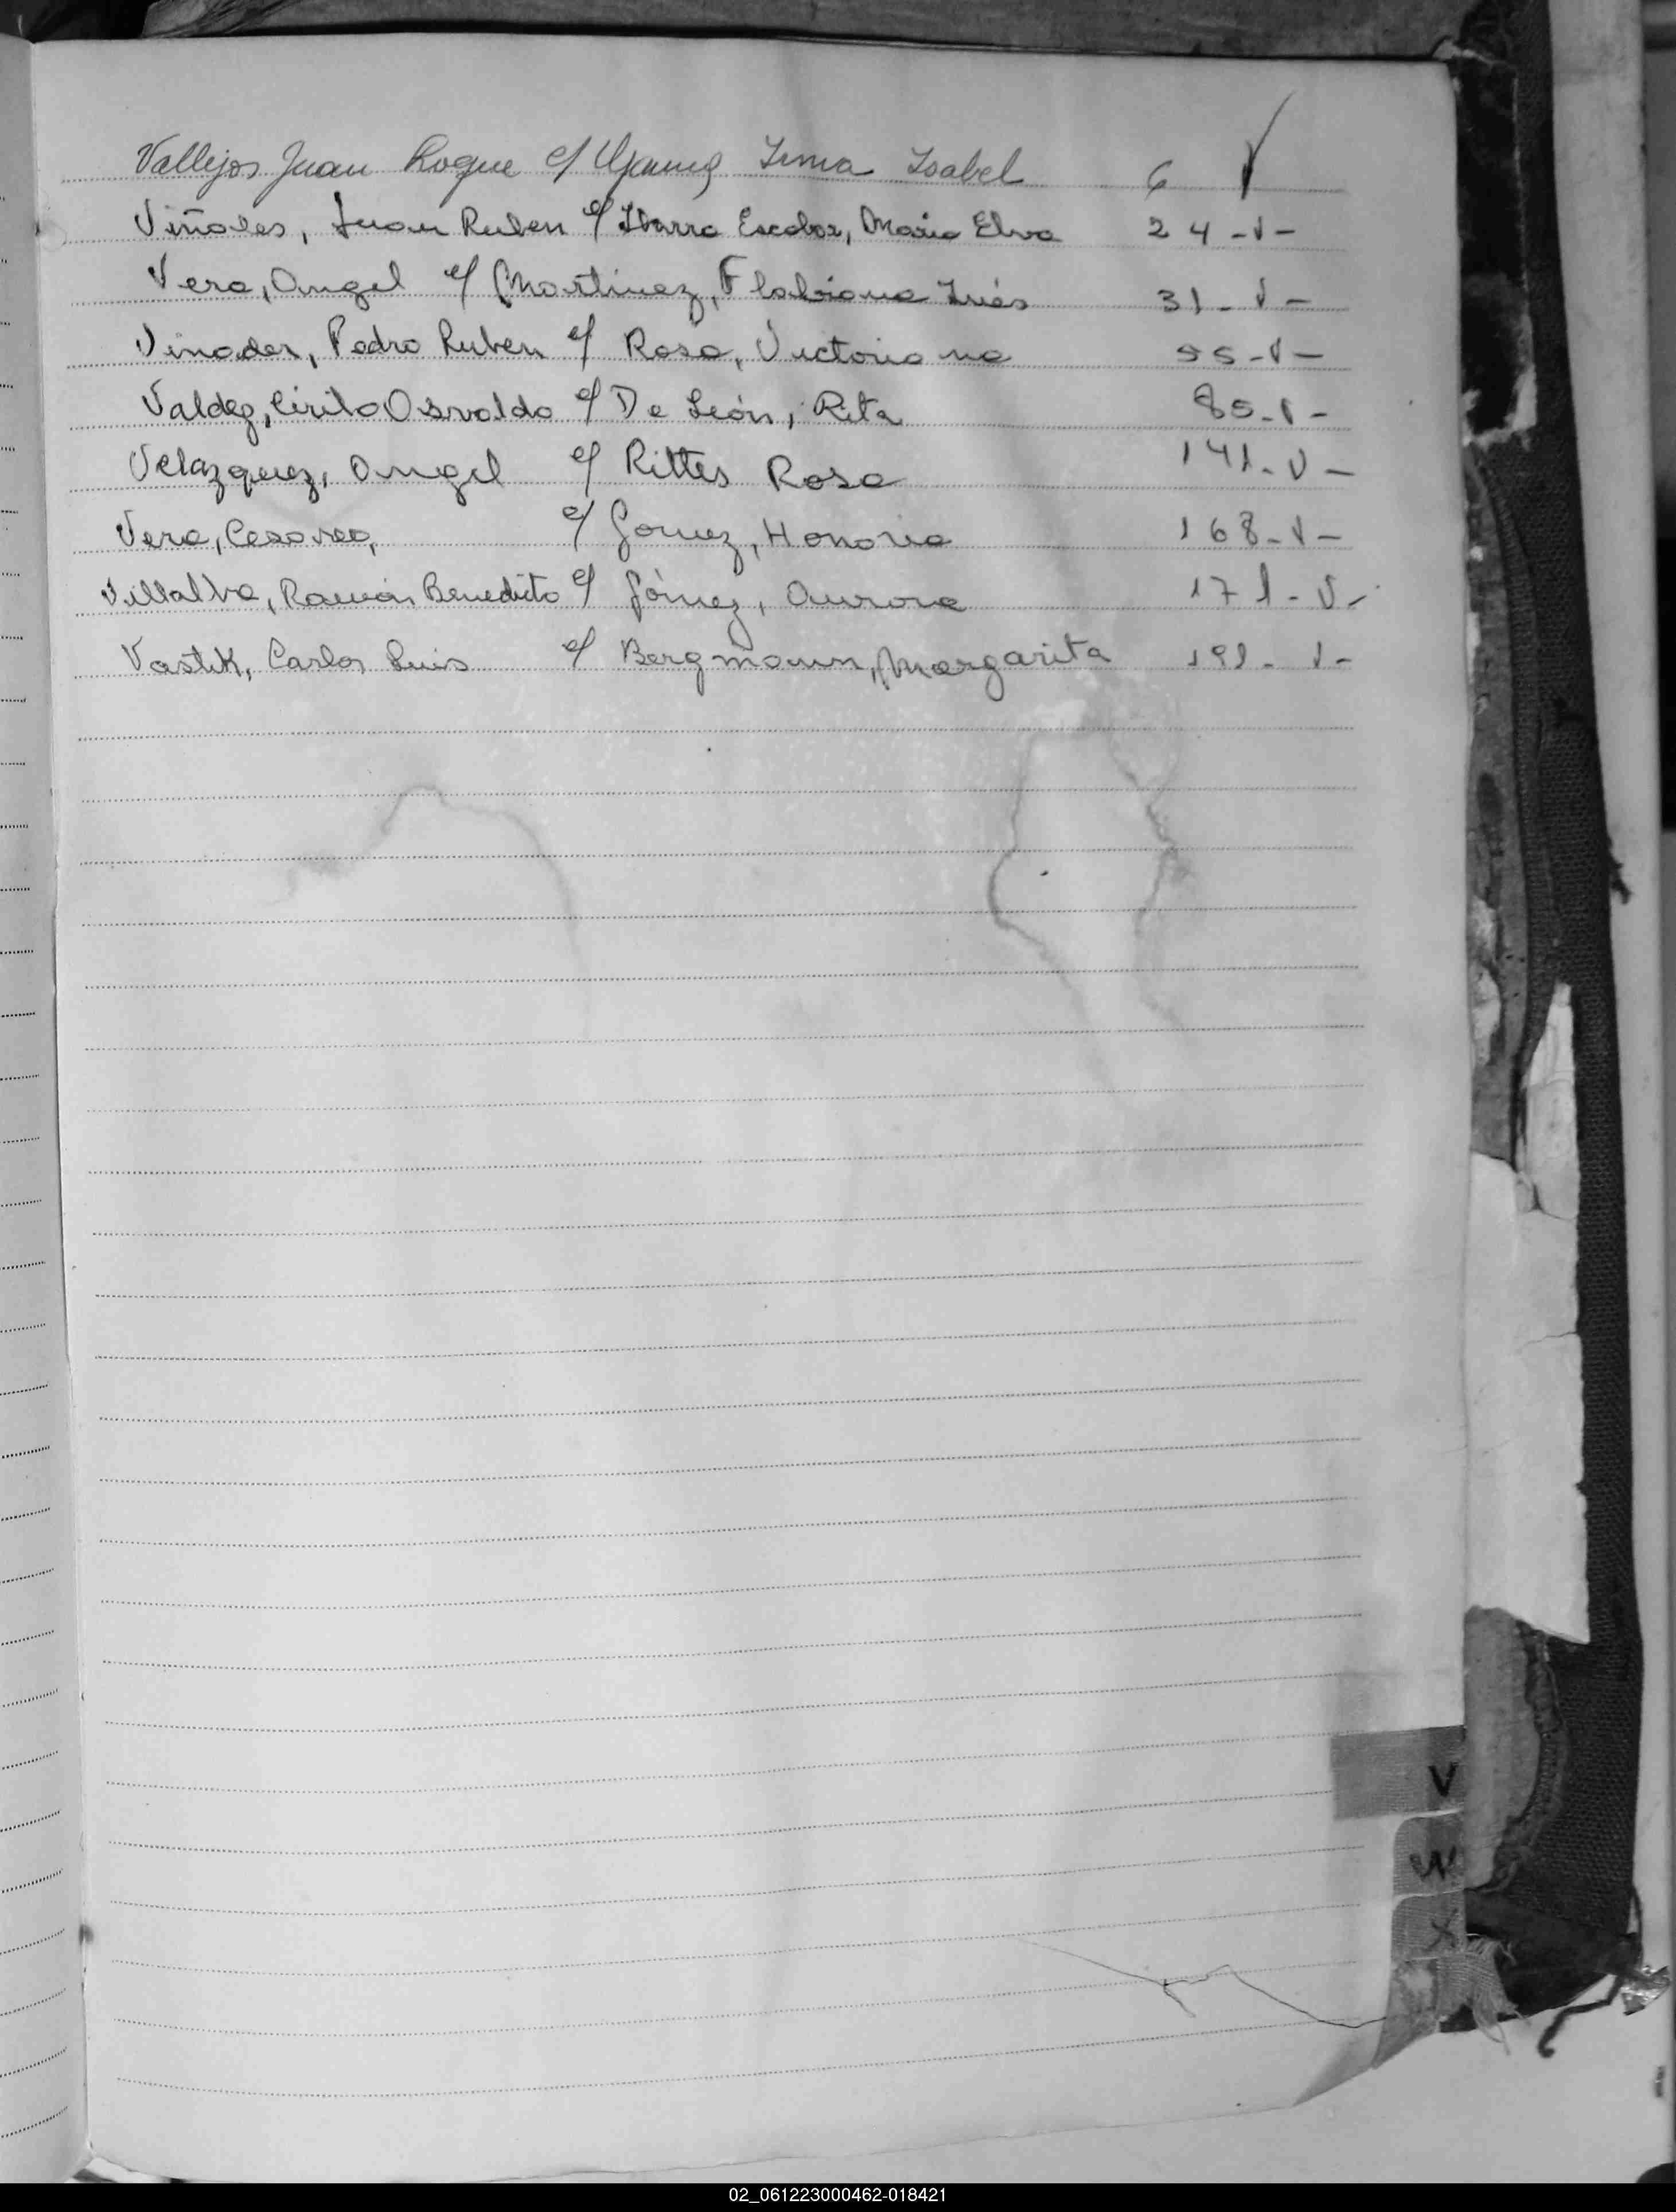 Vallejos Juan Roque c/ Irma Isabel 6 V
Viñales, Juan Ruben c/ Ibarra Escobar, Maria Elva 24 - V -
Vera, Angel c/ Martinez, Flabiana Inés 31 - V -
Vinader, Pedro Ruben c/ Rosa, Victoriana 55 - V -
Valdez, Cirilo Osvaldo c/ De León, Rita 85 - V -
Velazquez, Angel c/ Rittes Rosa 141 - V -
Vera, Cesareo, c/ Gomez, Honoria 168 - V -
Villalba, Ramón Benedicto c/ Gómez, Aurora 171 - V -
Vastik, Carlos Luis c/ Bergmann, Margarita 191 - V -
V
W
X
02_061223000462-018421